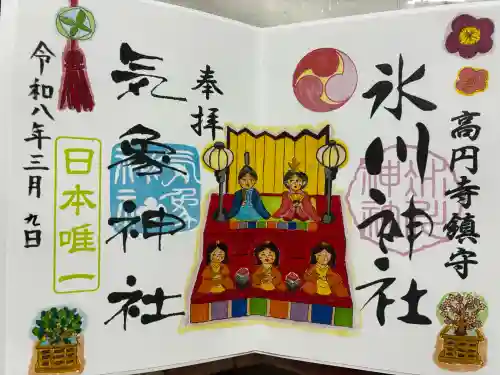 高円寺鎮守
氷川神社
奉拝
気象神社
日本唯一
令和八年三月九日